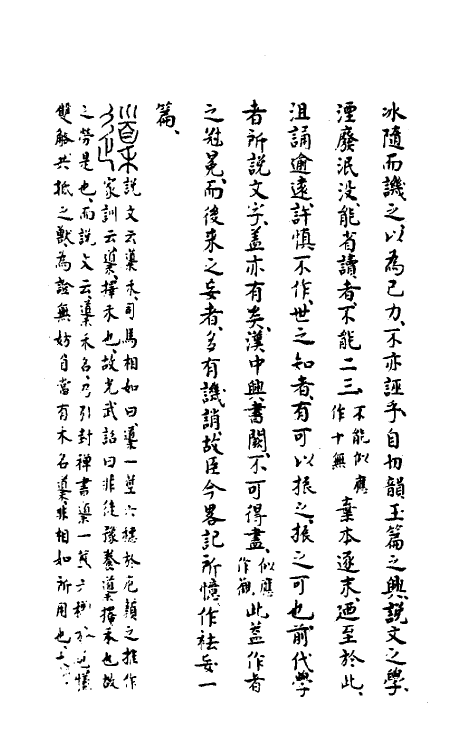 冰隨而譏之以為己力、不亦誣乎、自切韻玉篇之興、說文之學、
湮廢泯没、能省讀者、不能二三、不能似應作十無棄本逐末、廼至於此、
沮誦逾遠、許慎不作、世之知者、有可以振之、振之可也、前代學
者所說文字、蓋亦有矣、漢中興、書闕、不可得盡、似應作觀此蓋作者
之冠冕、而後来之妄者、多有譏誚、故臣今畧記所憶、作祛妄一
篇、
說文云䆃禾、司馬相如曰䆃一莖六穗於庖顏之推作
家訓云䆃、擇禾也、故光武詔曰非徒豫養䆃擇禾也故
之勞是也、而說文云、䆃禾名、乃引封禪書䆃一莖六穗於
雙觡共抵之獸為證無妨自當有禾名䆃、非相如所用也